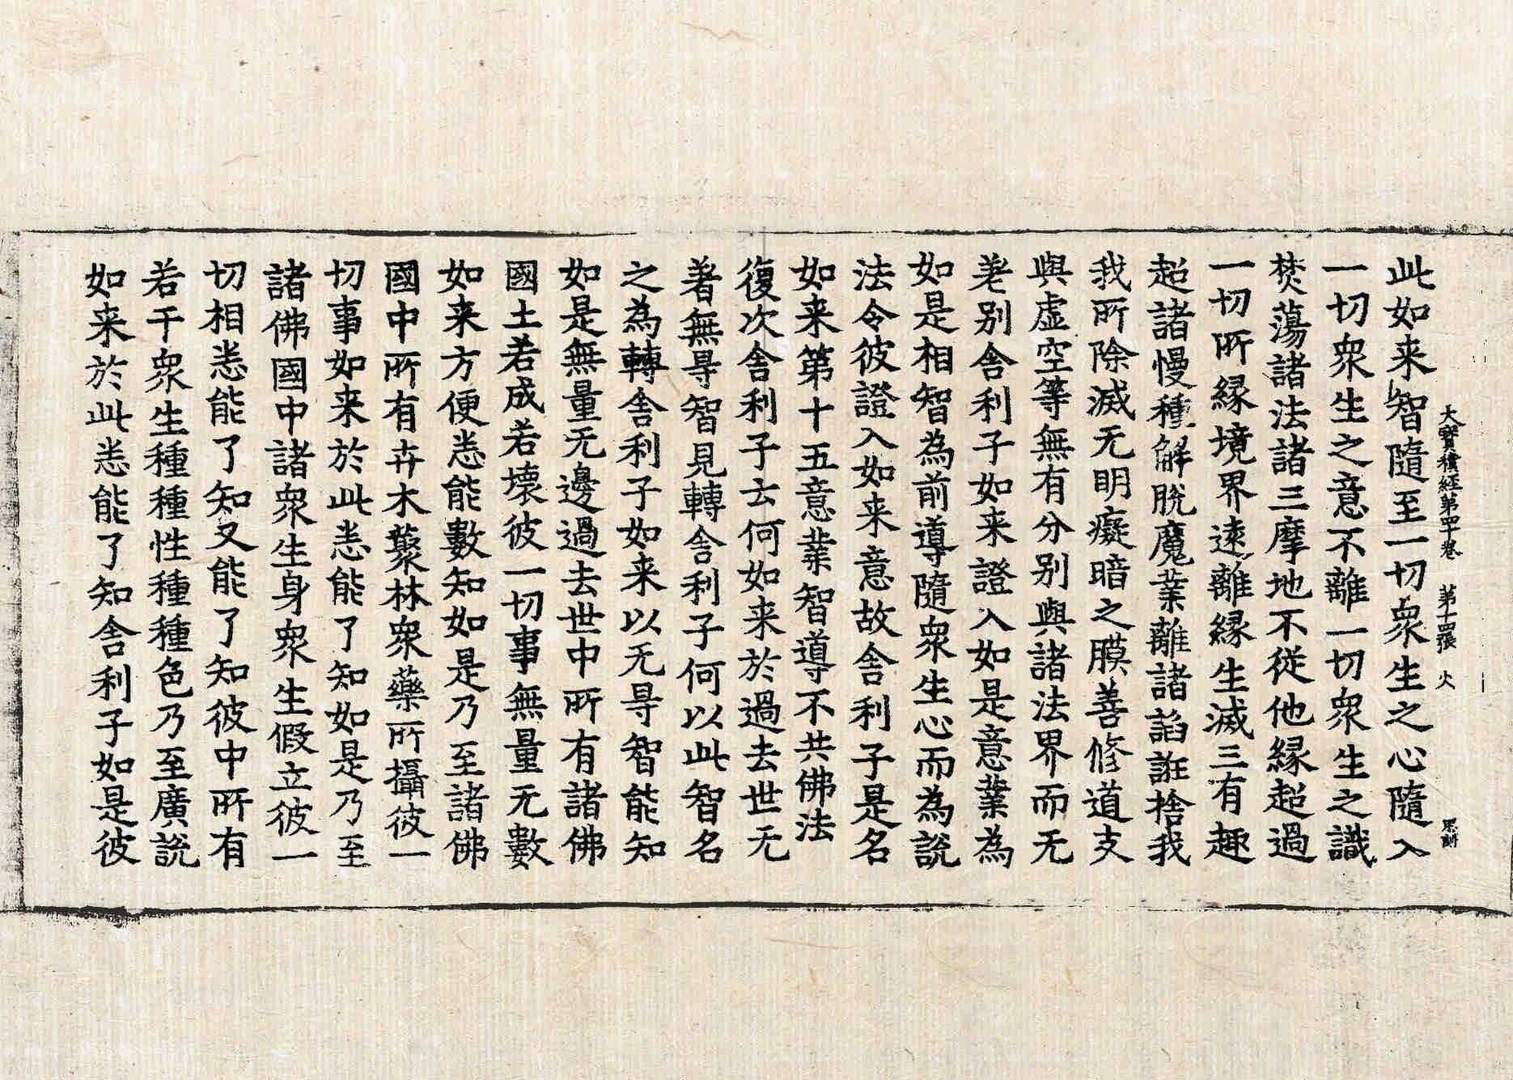 大寶積經第四十卷　第十四張　火
此如来智隨至一切衆生之心隨入
一切衆生之意不離一切衆生之識
焚蕩諸法諸三摩地不従他縁超過
一切所縁境界逺離縁生滅三有趣
超諸慢種解脫魔業離諸諂誑捨我
我所除滅无明癡暗之膜善修道支
與虛空等無有分别與諸法界而无
差别舎利子如来證入如是意業為
如是相智為前導隨衆生心而為說
法令彼證入如来意故舎利子是名
如来第十五意業智導不共佛法
復次舎利子云何如来於過去世无
著無㝵智見轉舎利子何以此智名
之為轉舎利子如来以无㝵智能知
如是無量无邊過去世中所有諸佛
國土若成若壞彼一切事無量无數
如来方便悉能數知如是乃至諸佛
國中所有卉木藂林衆藥所攝彼一
切事如来於此悉能了知如是乃至
諸佛國中諸衆生身衆生假立彼一
切相悉能了知又能了知彼中所有
若干衆生種種性種種色乃至廣說
如来於此悉能了知舎利子如是彼